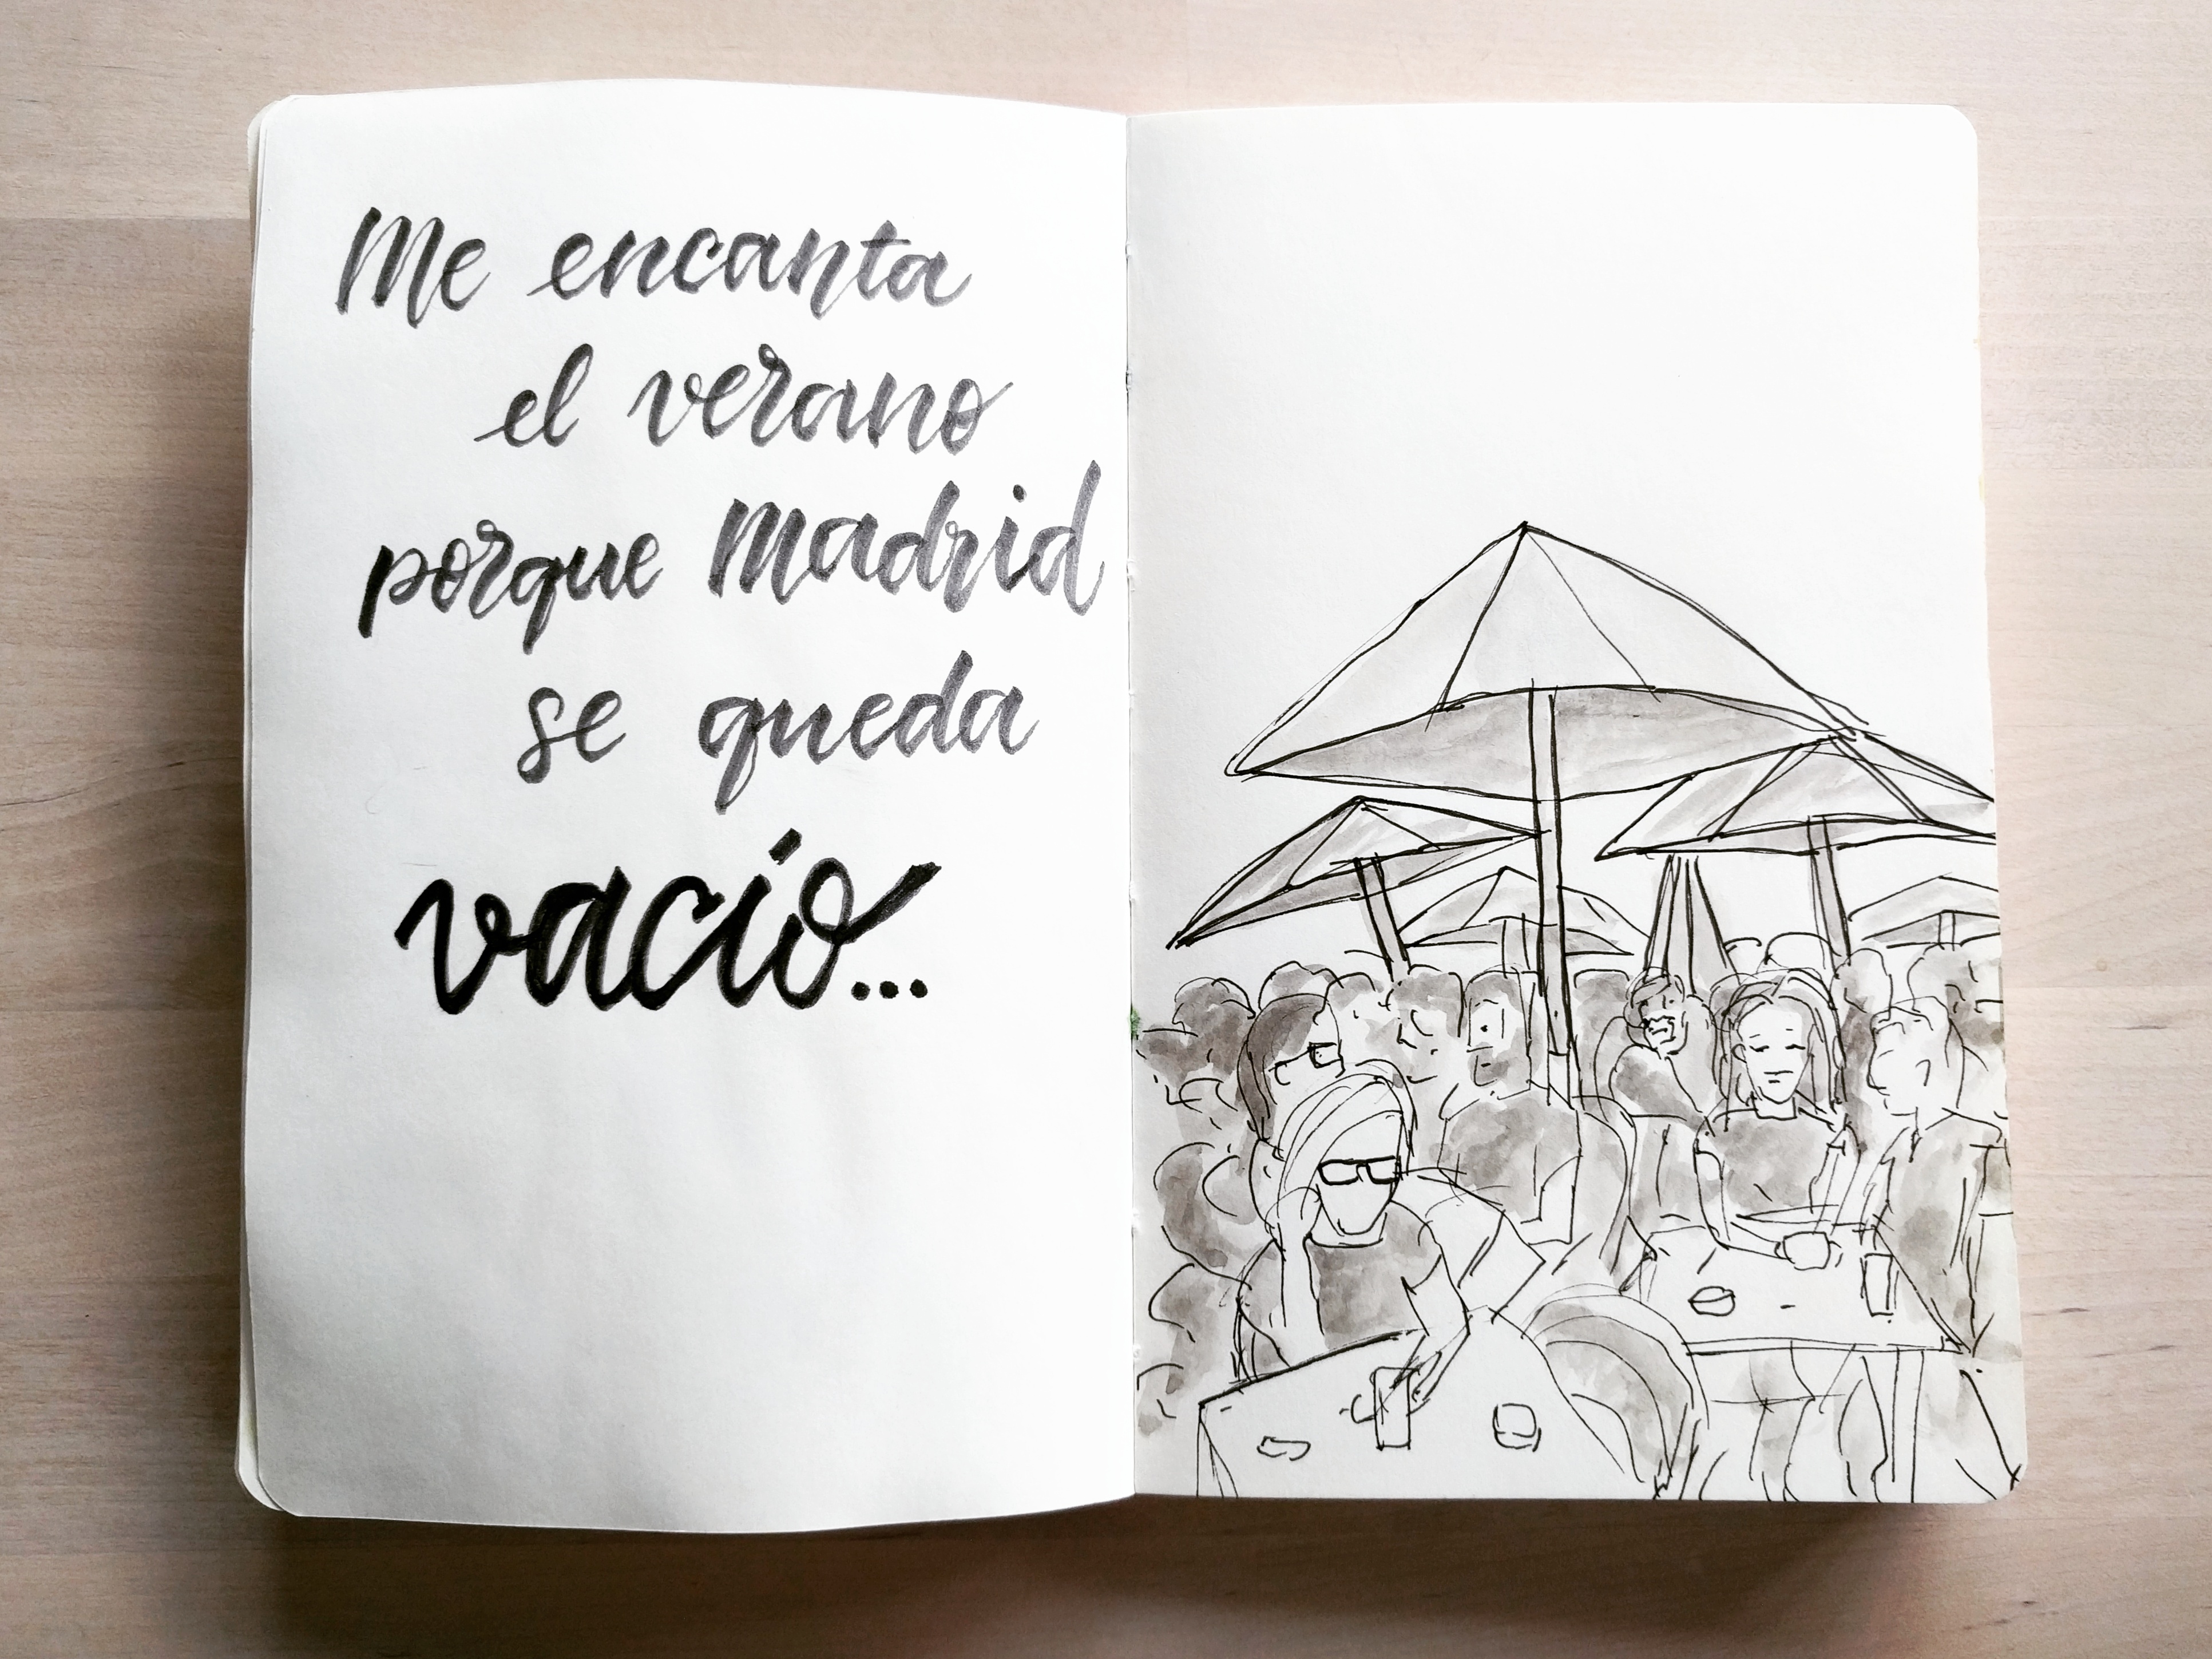 Me encanta
el verano
porque Madrid
se queda
vacío...